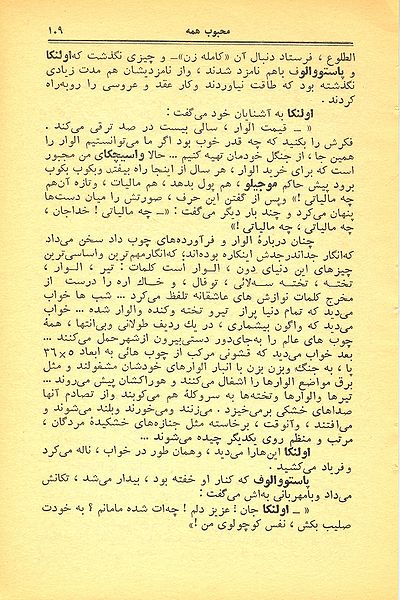 محبوب همه ۱۰۹
الطلوع ، فرستاد دنبال آن «کامله زن»ـ و چیزی نگذشت که‌اولنکا
و پاستووالوف باهم نامزد شدند ، واز نامزدیشان هم مدت زیادی
نگذشته بود که طاقت نیاوردند وکار عقد و عروسی را روبه‌راه
کردند .
اولنکا به آشنایان خود می‌گفت :
« ـ قیمت الوار ، سالی بیست در صد ترقی می‌کند .
فکرش را بکنید که چه قدر خوب بود اگر ما می‌توانستیم الوار را
همین جا ، از جنگل خودمان تهیه کنیم ... حالا واسیچکای من مجبور
است که برای خرید الوار ، هر سال از اینجا راه بیفتد وبکوب بکوب
برود پیش حاکم موجیلو ، هم پول بدهد ، هم مالیات ، وتازه آن‌هم
چه مالیاتی !» وپس از گفتن این حرف ، صورتش را میان دست‌ها
پنهان می‌کرد و چند بار دیگر می‌گفت : «ـ چه مالیاتی ! خداجان ،
چه مالیاتی ، چه مالیاتی !»
چنان دربارهٔ الوار و فرآورده‌های چوب داد سخن می‌داد
که‌انگار جداندرجدش اینکاره بوده‌اند؛ که‌انگارمهم‌ترین واساسی‌ترین
چیزهای این دنیای دون ، الـوار است کلمات : تیر ، الـوار ،
تختـه ، تختـه سه‌لائی ، توفال ، و خاك اره را درست از
مخرج کلمات نوازش های عاشقانه تلفظ می‌کرد ... شب ها خواب
می‌دید که تمام دنیا پراز تیرو تخته وکنده والوار شده ... خواب
می‌دید که واگون بیشماری ، در یك ردیف طولانی وبی‌انتها ، همهٔ
چوب های عالم را به‌جای‌دور دستی‌بیرون ازشهرحمل می‌کنند ...
بعد خواب می‌دید که قشونی مرکب از چوب هائی به ابعاد ۵×۳۶
پا ، به جنگ‌و بزن بزن با انبار الوارهای خودشان مشغولند و مثل
برق مواضع الوارها را اشغال می‌کنند و هوراکشان پیش می‌روند ...
تیرها والوارها وتخته‌ها به سروکلهٔ هم می‌کوبند واز تصادم آنها
صداهای خشکی برمی‌خیزد . می‌زنند ومی‌خورند وبلند می‌شوند و
می‌افتند ، وآنوقت ، برخاسته مثل جنازه‌های خشکیدهٔ مردگان ،
مرتب و منظم روی یکدیگر چیده می‌شوند ...
اولنکا این‌هارا می‌دید ، وهمان طور در خواب ، ناله می‌کرد
و فریاد می‌کشید .
پاستووالوف که کنار او خفته بود ، بیدار می‌شد ، تکانش
می‌داد وبامهربانی به‌اش می‌گفت :
« ـ اولنکا جان ! عزیز دلم ! چه‌ات شده مامانم ؟ به خودت
صلیب بکش ، نفس کوچولوی من !»